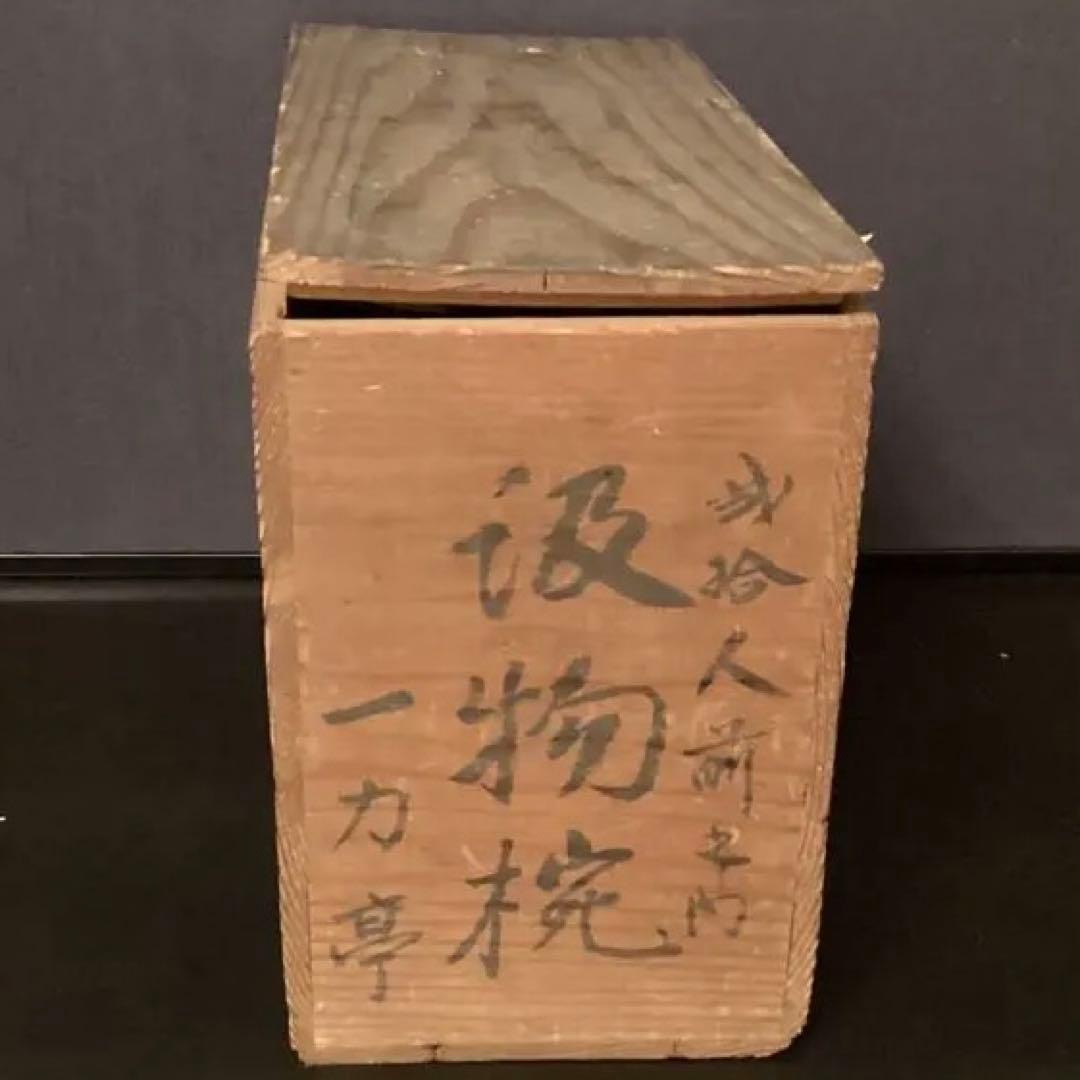 弐拾人前之内
汲物椀
一力亭